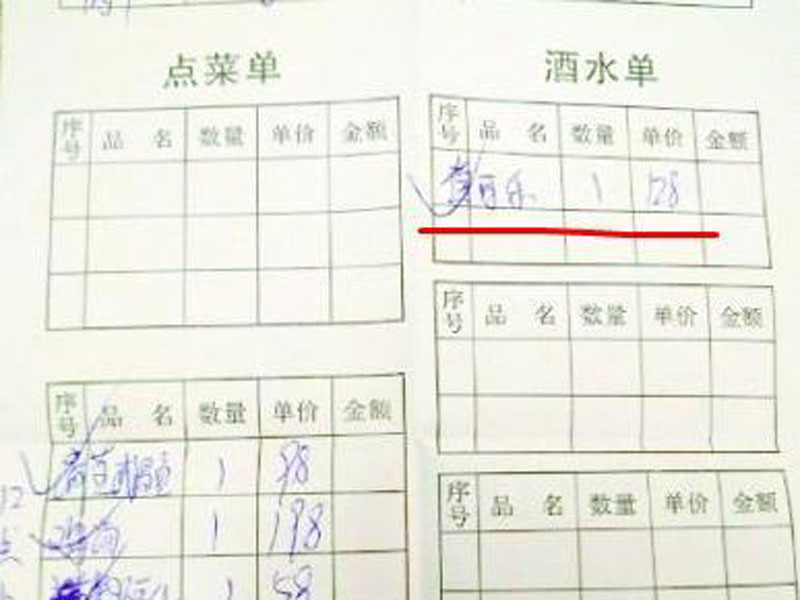 点菜单
序号 品名 数量 单价 金额
酒水单
序号 品名 数量 单价 金额
可乐 1 128
序号 品名 数量 单价 金额
序号 品名 数量 单价 金额
1 98
1 198
1 58
序号 品名 数量 单价 金额